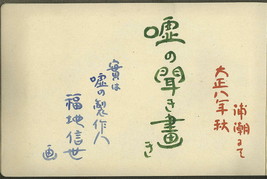 浦潮にて
大正八年秋
嘘の聞き畫き
實は
嘘の製作人
福地信世
画